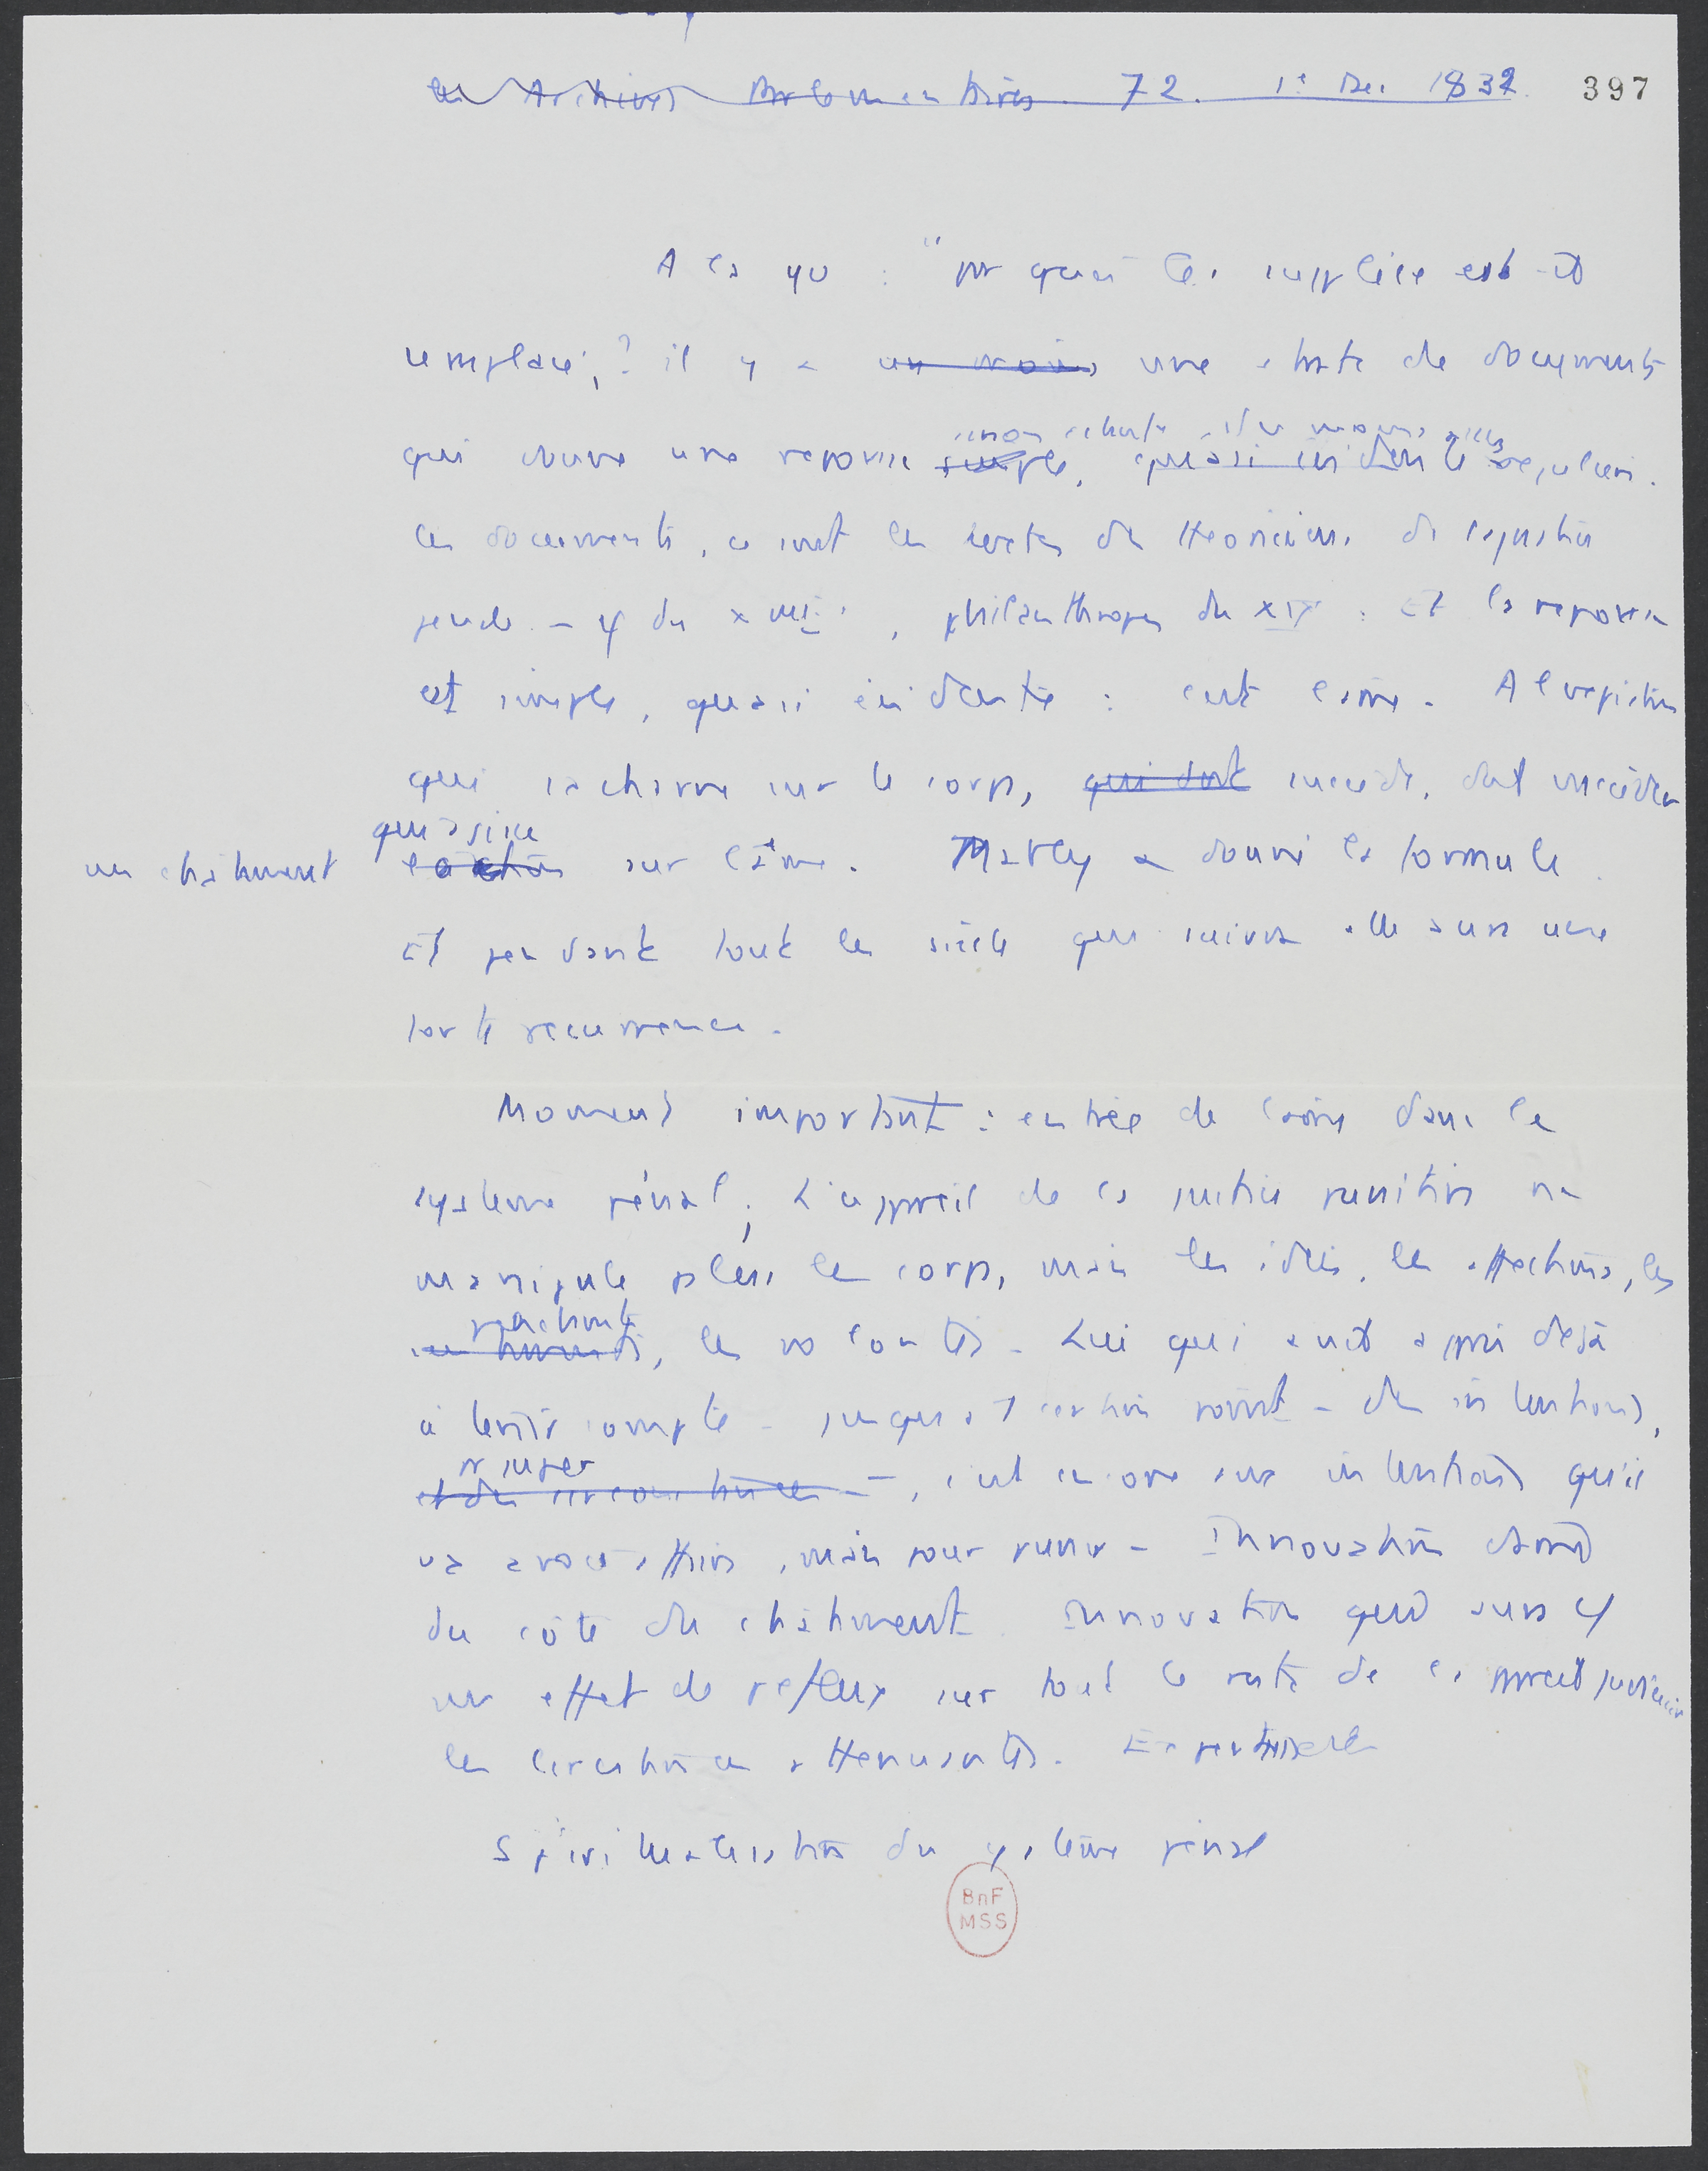 les Archives Parlementaires 72. 1e Dec 1832 397
A la qu : "par quoi le supplice est-il
remplacé,? il y a un mois, une sorte de documents
sinon exhaute, du moins assez
qui donne une reponse simple, quasi evidente reguliere.
Ces documents, ce sont les textes des theoriciens de la justice
penale - du XVIIIe, philanthropes du XIXe : Et la reponse
est simple, quasi évidente : c'est l'ame. A l'expiation
qui s'acharne sur le corps, qui doit succede, doit succéder
qui agisse
un châtiment l'action sur l'âme. Mably a donné la formule.
Et pendant tout le siècle qui suivra elle aura une
forte recurrence.
Moment important : entrée de l'ame dans le
systeme pénal; L'appareil de la justice punitive ne
manipule plus le corps, mais les idées, les affections, les
penchants
sentiments, les volontés. Lui qui avait appris déjà
à tenir compte - jusqu'a 1 certain point - des intentions,
pr juger
et des circonstances -, c'est encore aux intentions qu'il
va avoir affaire, mais pour punir - Innovation donc
du côté du châtiment. Innovation qui aura
un effet de reflux sur tout le reste de l'appareil judiciaire
les circonstances attenuantes.
Spiritualisation du système pénal
BnF
MSS